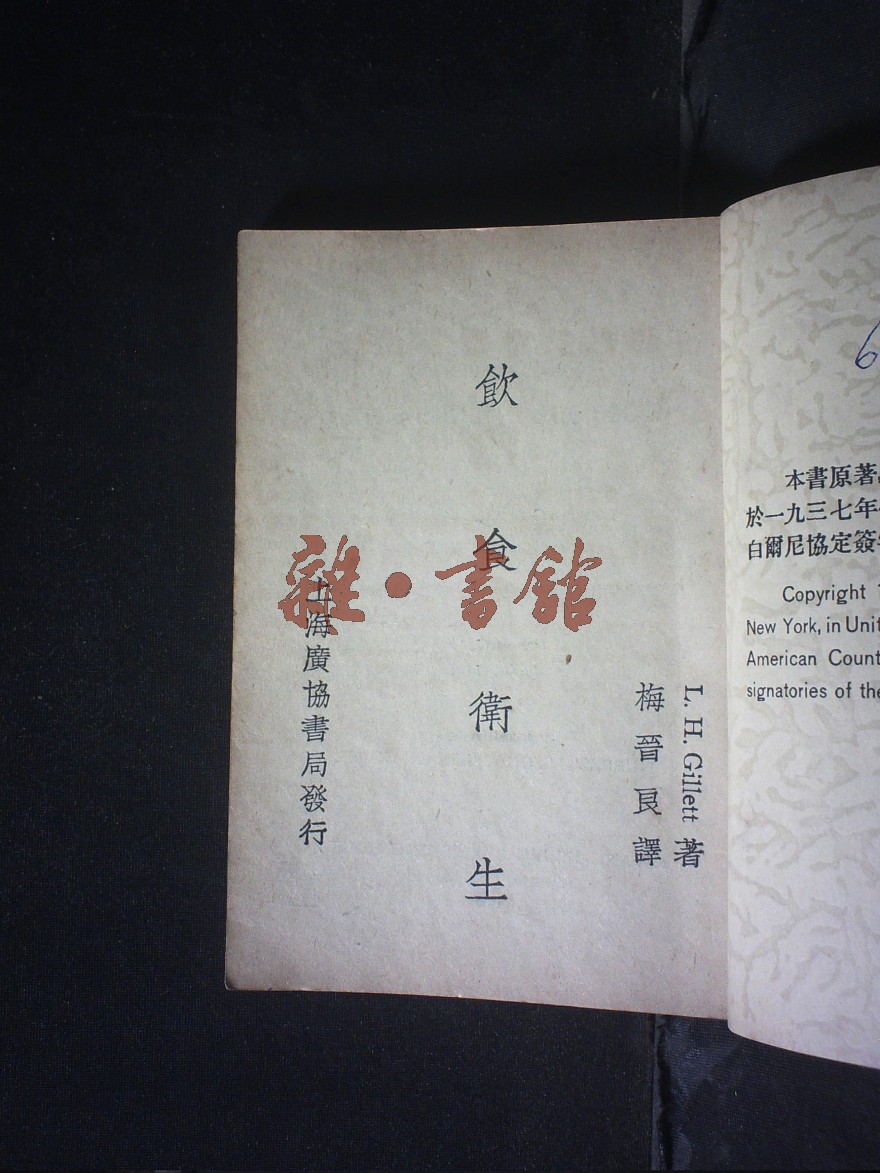 L. H. Gillett 著
梅晉良譯
飲食衛生
上海廣協書局發行
雜·書館
6
本書原著
於一九三七年
白爾尼協定簽
Copyright
New York, in Unit
American Count
signatories of the